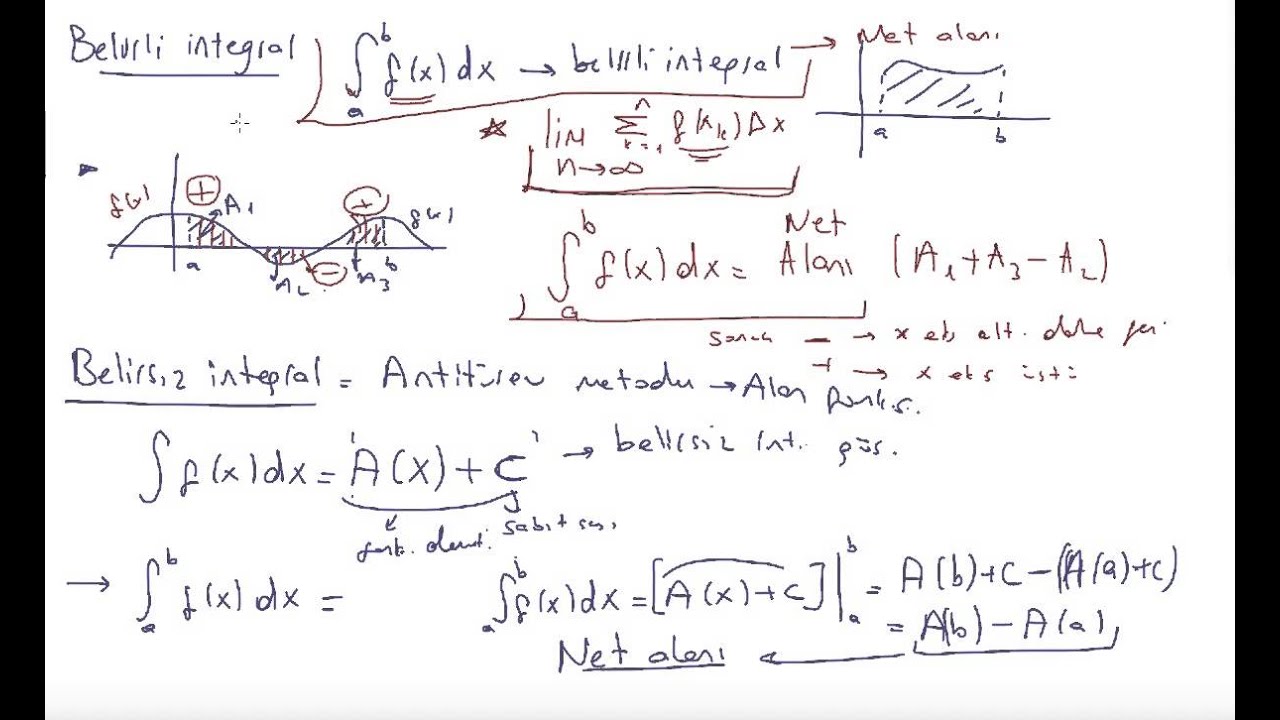 Belirli integral ∫_a^b f(x) dx → belirli integral → Net alanı
★ lim_{n→∞} ∑_{k=1}^n f(x_k) Δx
a b
f(x) + A₁ + f(x)
a A₂ − A₃ b
∫_a^b f(x) dx = Net Alanı (A₁ + A₃ − A₂)
− → x eks alt. daha
+ → x eks üstü
Belirsiz integral = Antitürev metodu → Alan fonks.
∫ f(x) dx = A(x) + C → belirsiz int. gös.
sabit
→ ∫_a^b f(x) dx = ∫_a^b f(x) dx = [A(x) + C] |_a^b = A(b) + C − (A(a) + C)
= A(b) − A(a)
Net alanı ←